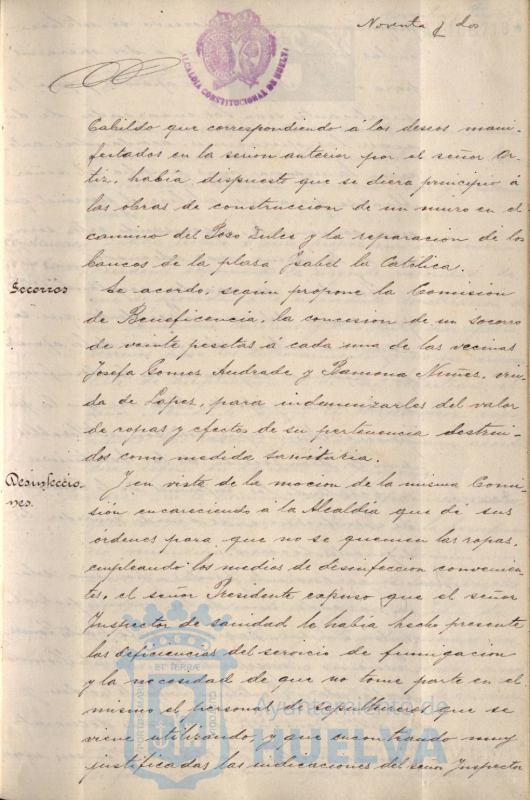 Noventa y dos
ALCALDIA CONSTITUCIONAL DE HUELVA
Cabildo que correspondiendo á los deseos mani-
festados en la sesion anterior por el señor Or-
tiz, había dispuesto que se diera principio á
las obras de construccion de un muro en el
camino del Pozo Dulce y la reparacion de los
bancos de la plaza Isabel la Católica.
Socorros
Se acordo, según propone la Comision
de Beneficencia, la concesion de un socorro
de veinte pesetas á cada una de las vecinas
Josefa Gomez Andrade y Ramona Nuñez, viu-
da de Lopez, para indemnizarles del valor
de ropas y efectos de su pertenencia destrui-
dos como medida sanitaria.
Desinfeccio-
nes.
Y en vista de la mocion de la misma Comi-
sión encareciendo á la Alcaldía que dé sus
órdenes para que no se quemen las ropas,
empleando los medios de desinfeccion convenien-
tes, el señor Presidente expuso que el señor
Inspector de sanidad le había hecho presente
las deficiencias del servicio de fumigacion
y la necesidad de que no tome parte en el
mismo el personal de sepultureros que se
viene utilizando, y que encontrando muy
justificadas las indicaciones del señor Inspector
Ayuntamiento de
HUELVA